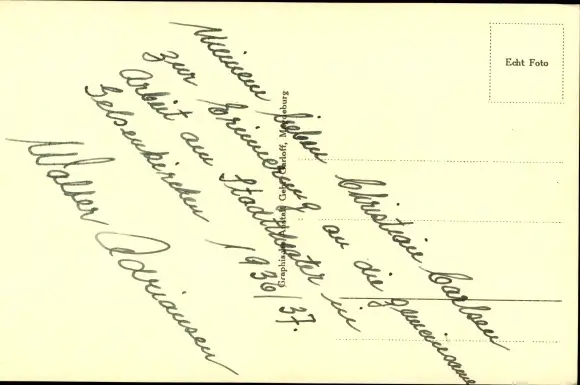 Meinem lieben Christian Carlsen
zur Erinnerung an die gemeinsame
Arbeit am Stadttheater in
Gelsenkirchen 1936/37.
Walter Adriansen
Echt Foto
Graphische Anstalt Gebr. Garloff, Magdeburg